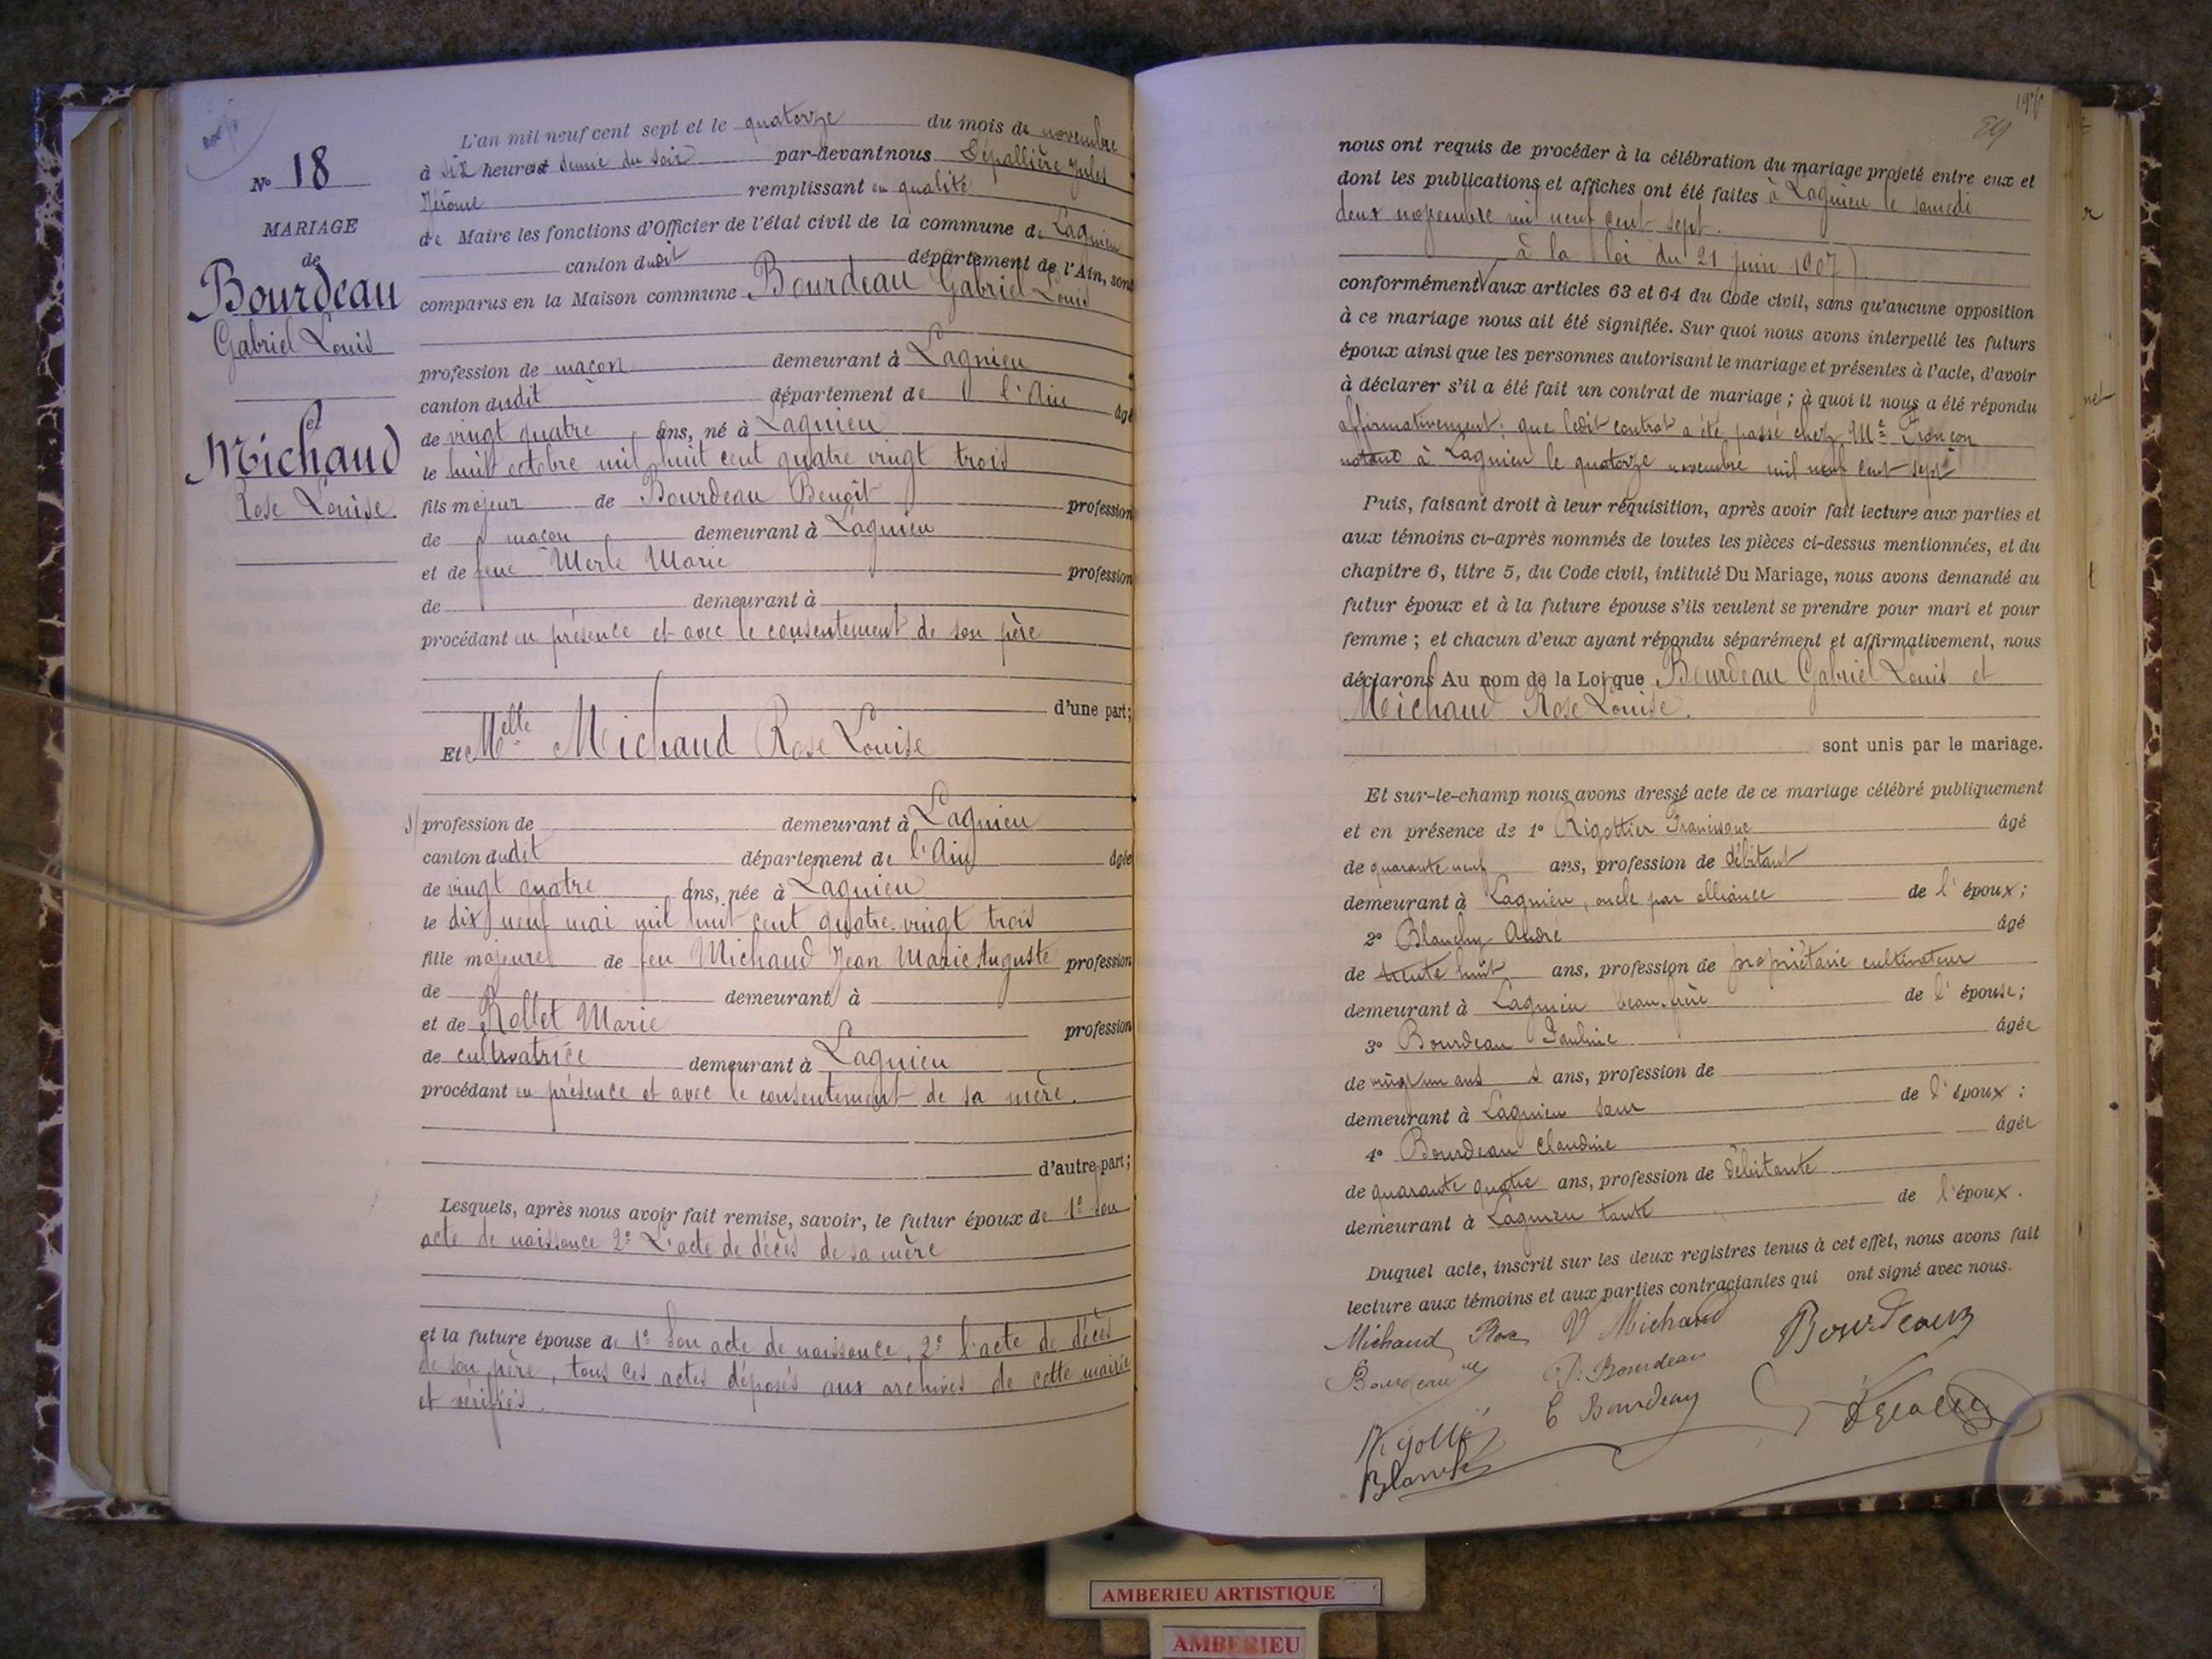 N° 18
MARIAGE
de
Bourdeau
Gabriel Louis
et
Michaud
Rose Louise.
L'an mil neuf cent sept et le quatorze du mois de novembre
à six heures et demie du soir par-devant nous Dépallière Jules
Jérôme remplissant en qualité
de Maire les fonctions d'Officier de l'état civil de la commune de Lagnieu
canton dudit département de l'Ain, sont
comparus en la Maison commune Bourdeau Gabriel Louis
profession de maçon demeurant à Lagnieu
canton dudit département de l'Ain âgé
de vingt quatre ans, né à Lagnieu
le huit octobre mil huit cent quatre vingt trois
fils majeur de Bourdeau Benoît profession
de maçon demeurant à Lagnieu
et de feue Merle Marie profession
de demeurant à
procédant en présence et avec le consentement de son père
d'une part;
Et Melle Michaud Rose Louise
s/ profession de demeurant à Lagnieu
canton dudit département de l'Ain âgée
de vingt quatre ans, née à Lagnieu
le dix neuf mai mil huit cent quatre-vingt trois
fille majeure de feu Michaud Jean Marie Auguste profession
de demeurant à
et de Rollet Marie profession
de cultivatrice demeurant à Lagnieu
procédant en présence et avec le consentement de sa mère.
d'autre part;
Lesquels, après nous avoir fait remise, savoir, le futur époux de 1° son
acte de naissance 2° L'acte de décès de sa mère
et la future épouse de 1° Son acte de naissance, 2° l'acte de décès
de son père, tous ces actes déposés aux archives de cette mairie
et vérifiés.
89
nous ont requis de procéder à la célébration du mariage projeté entre eux et
dont les publications et affiches ont été faites à Lagnieu le samedi
deux novembre mil neuf cent sept.
à la loi du 21 juin 1907)
conformément aux articles 63 et 64 du Code civil, sans qu'aucune opposition
à ce mariage nous ait été signifiée. Sur quoi nous avons interpellé les futurs
époux ainsi que les personnes autorisant le mariage et présentes à l'acte, d'avoir
à déclarer s'il a été fait un contrat de mariage; à quoi il nous a été répondu
affirmativement; que ledit contrat a été passé chez Me Françon
notaire à Lagnieu le quatorze novembre mil neuf cent sept
Puis, faisant droit à leur réquisition, après avoir fait lecture aux parties et
aux témoins ci-après nommés de toutes les pièces ci-dessus mentionnées, et du
chapitre 6, titre 5, du Code civil, intitulé Du Mariage, nous avons demandé au
futur époux et à la future épouse s'ils veulent se prendre pour mari et pour
femme; et chacun d'eux ayant répondu séparément et affirmativement, nous
déclarons Au nom de la Loi que Bourdeau Gabriel Louis et
Michaud Rose Louise.
sont unis par le mariage.
Et sur-le-champ nous avons dressé acte de ce mariage célébré publiquement
et en présence de 1° Rigottier Francisque âgé
de quarante neuf ans, profession de débitant
demeurant à Lagnieu, oncle par alliance de l'époux;
2° Blanchy André âgé
de trente huit ans, profession de propriétaire cultivateur
demeurant à Lagnieu beau-frère de l'épouse;
3° Bourdeau Pauline âgée
de vingt un ans s ans, profession de
demeurant à Lagnieu sœur de l'époux:
4° Bourdeau Claudine âgée
de quarante quatre ans, profession de débitante
demeurant à Lagnieu tante de l'époux.
Duquel acte, inscrit sur les deux registres tenus à cet effet, nous avons fait
lecture aux témoins et aux parties contractantes qui ont signé avec nous.
Michaud Rose V Michaud Bourdeau
Bourdeau P. Bourdeau
C Bourdeau
AMBERIEU ARTISTIQUE
AMBERIEU